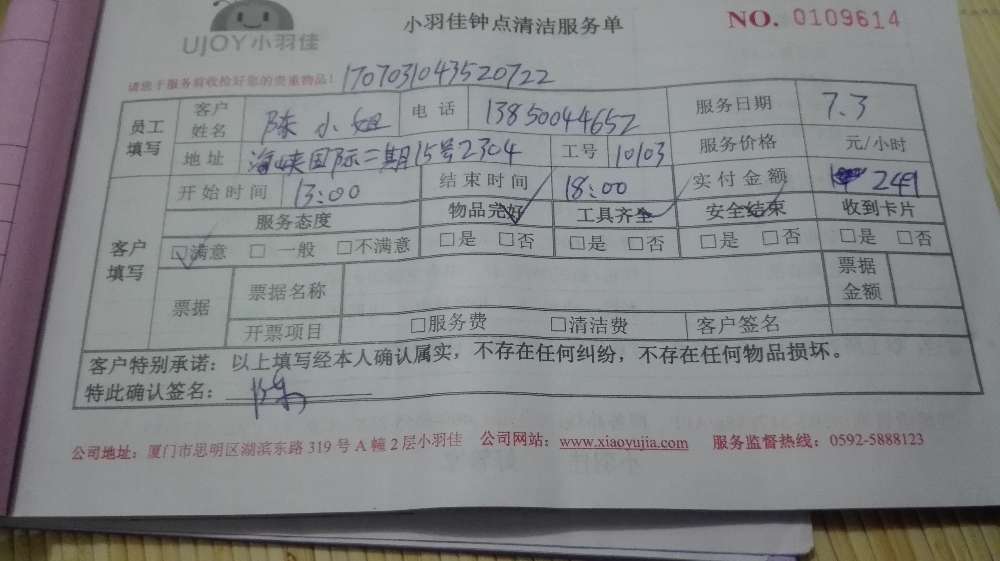 UJOY小羽佳
小羽佳钟点清洁服务单
NO. 0109614
请您于服务前收检好您的贵重物品！ 170703104352072​2
员工填写 客户姓名 陈小姐 电话 13850044652 服务日期 7.3
地址 海峡国际二期15号2304 工号 10103 服务价格 元/小时
客户填写 开始时间 13:00 结束时间 18:00 实付金额 249
服务态度 物品完好 工具齐全 安全结束 收到卡片
□满意 □一般 □不满意 □是 □否 □是 □否 □是 □否 □是 □否
票据 票据名称 票据金额
开票项目 □服务费 □清洁费 客户签名
客户特别承诺：以上填写经本人确认属实，不存在任何纠纷，不存在任何物品损坏。
特此确认签名： 陈
公司地址：厦门市思明区湖滨东路 319 号 A 幢 2 层小羽佳 公司网站：www.xiaoyujia.com 服务监督热线：0592-5888123